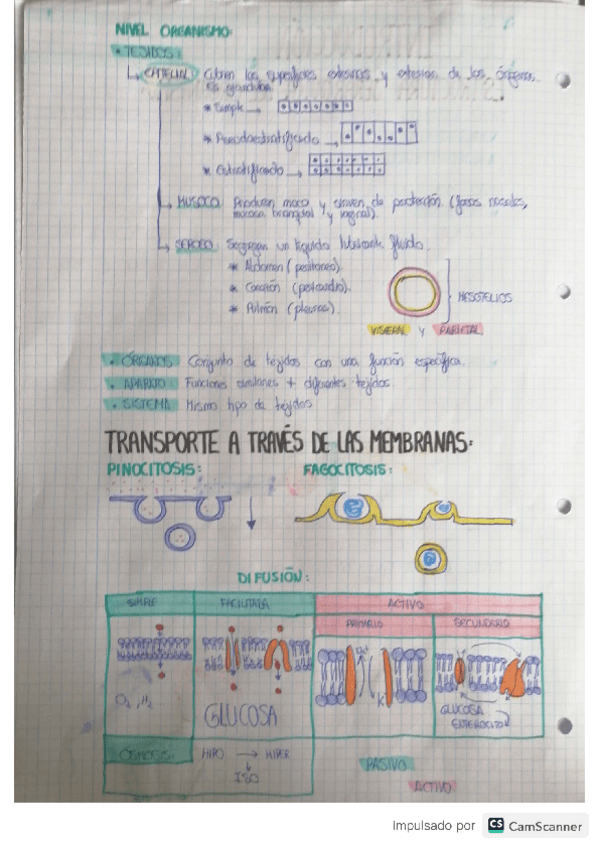 NIVEL ORGANISMO:
• TEJIDOS:
EPITELIAL: Cubren las superficies externas y externas de los órganos.
* Simple →
* Pseudoestratificado →
* Estratificado →
MUSOCO: Producen moco y sirven de protección. (fosas nasales,
mucosa bronquial y vaginal).
SEROSO: Segregan un líquido lubricante fluido.
* Abdomen (peritoneo).
* Corazón (pericardio).
* Pulmón (pleuras).
MESOTELIOS
VISCERAL y PARIETAL
• ÓRGANOS: Conjunto de tejidos con una función específica.
• APARATO: Funciones similares + diferentes tejidos.
• SISTEMA: Mismo tipo de tejidos
TRANSPORTE A TRAVÉS DE LAS MEMBRANAS:
PINOCITOSIS:
FAGOCITOSIS:
DIFUSIÓN:
SIMPLE
FACILITADA
ACTIVO
PRIMARIO
SECUNDARIO
K
GLUCOSA
GLUCOSA
ENTEROCITO
OSMOSIS:
HIPO → HIPER
ISO
PASIVO
ACTIVO
Impulsado por CS CamScanner